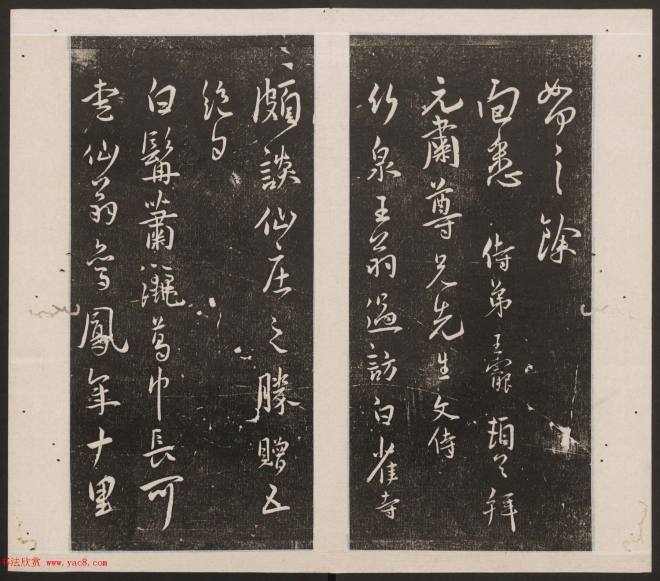 之餘
面悉 侍弟王寵頓首拜
元肅尊兄先生文侍
竹泉王翁過訪白雀寺
頗談仙庄之勝贈五
絕句
白髯蕭灑葛巾長可
是仙翁駕鳳年十里
书法欣赏 www.yac8.com